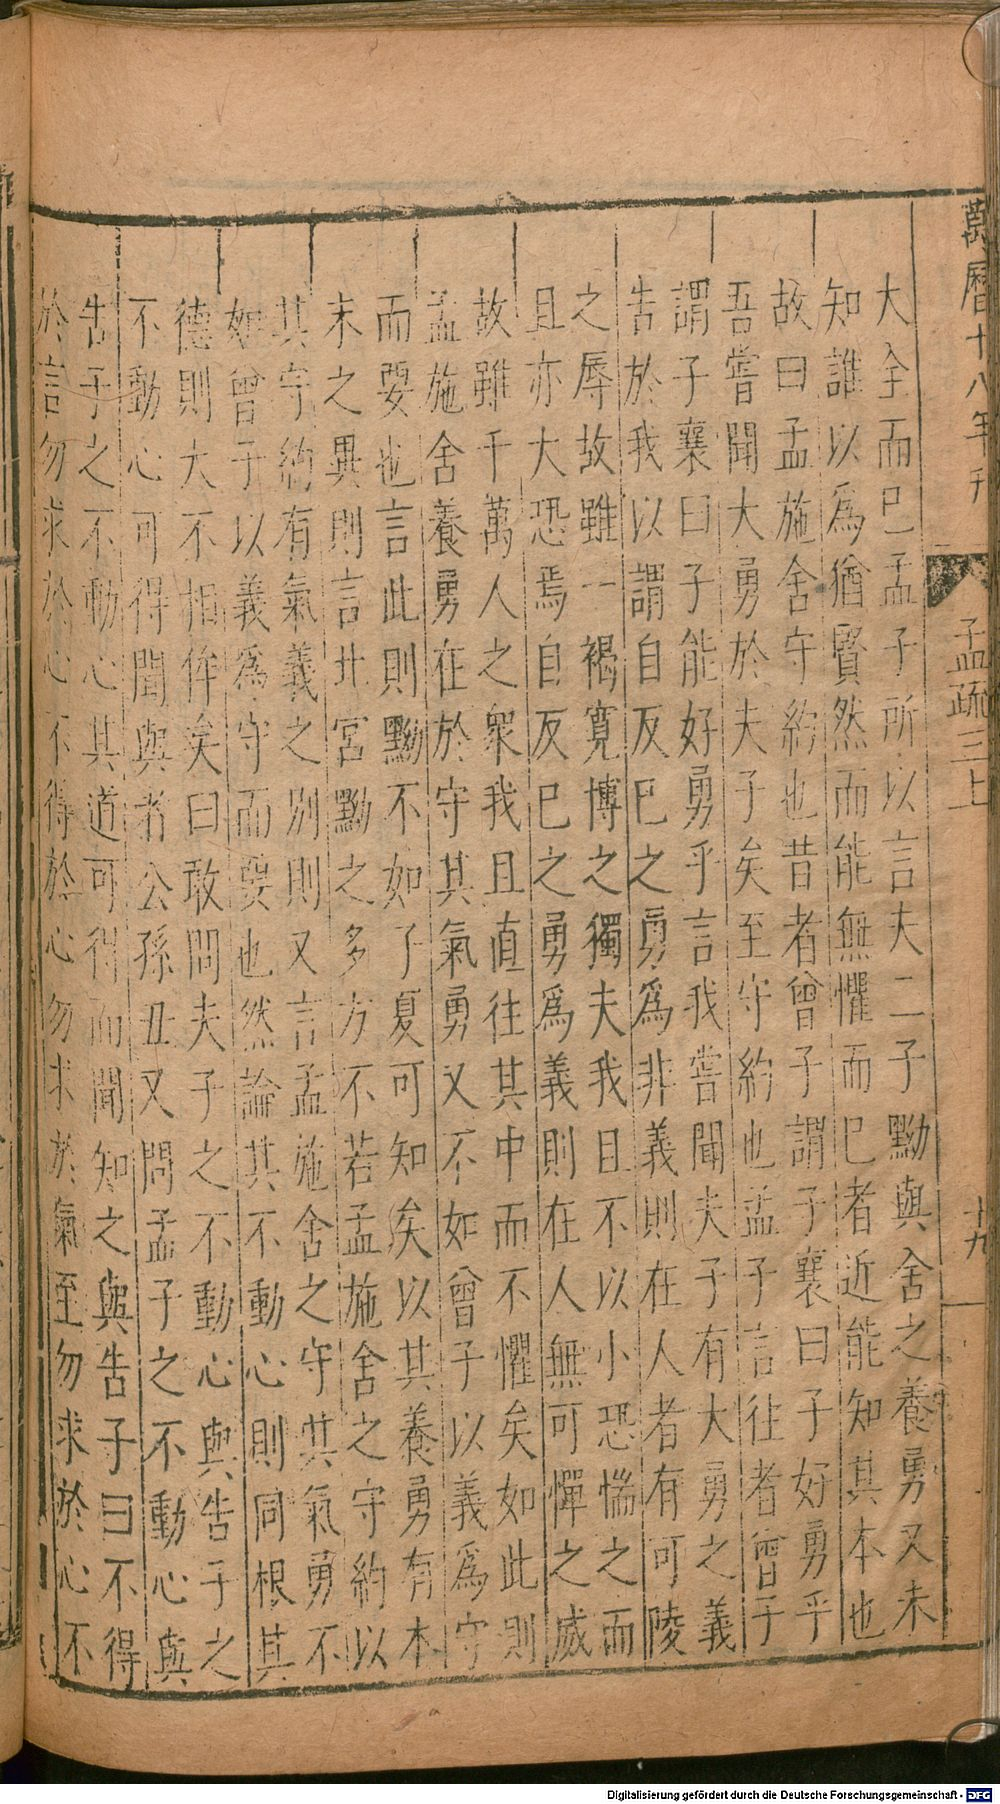 萬曆十八年刊
孟疏三上
十九
大全而巳孟子所以言夫二子黝與舍之養勇又未
知誰以爲猶賢然而能無懼而巳者近能知其本也
故曰孟施舍守約也昔者曾子謂子襄曰子好勇乎
吾嘗聞大勇於夫子矣至守約也孟子言往者曾子
謂子襄曰子能好勇乎言我嘗聞夫子有大勇之義
告於我以謂自反巳之勇爲非義則在人者有可陵
之辱故雖一褐寬博之獨夫我且不以小恐惴之而
且亦大恐焉自反巳之勇爲義則在人無可憚之威
故雖千萬人之衆我且直往其中而不懼矣如此則
孟施舍養勇在於守其氣勇又不如曾子以義爲守
而要也言此則黝不如子夏可知矣以其養勇有本
末之異則言北宮黝之多方不若孟施舍之守約以
其守約有氣義之別則又言孟施舍之守其氣勇不
如曾子以義爲守而要也然論其不動心則同根其
德則大不相侔矣曰敢問夫子之不動心與告子之
不動心可得聞與者公孫丑又問孟子之不動心與
告子之不動心其道可得而聞知之與告子曰不得
於言勿求於心不得於心勿求於氣至勿求於心不
Digitalisierung gefördert durch die Deutsche Forschungsgemeinschaft - DFG